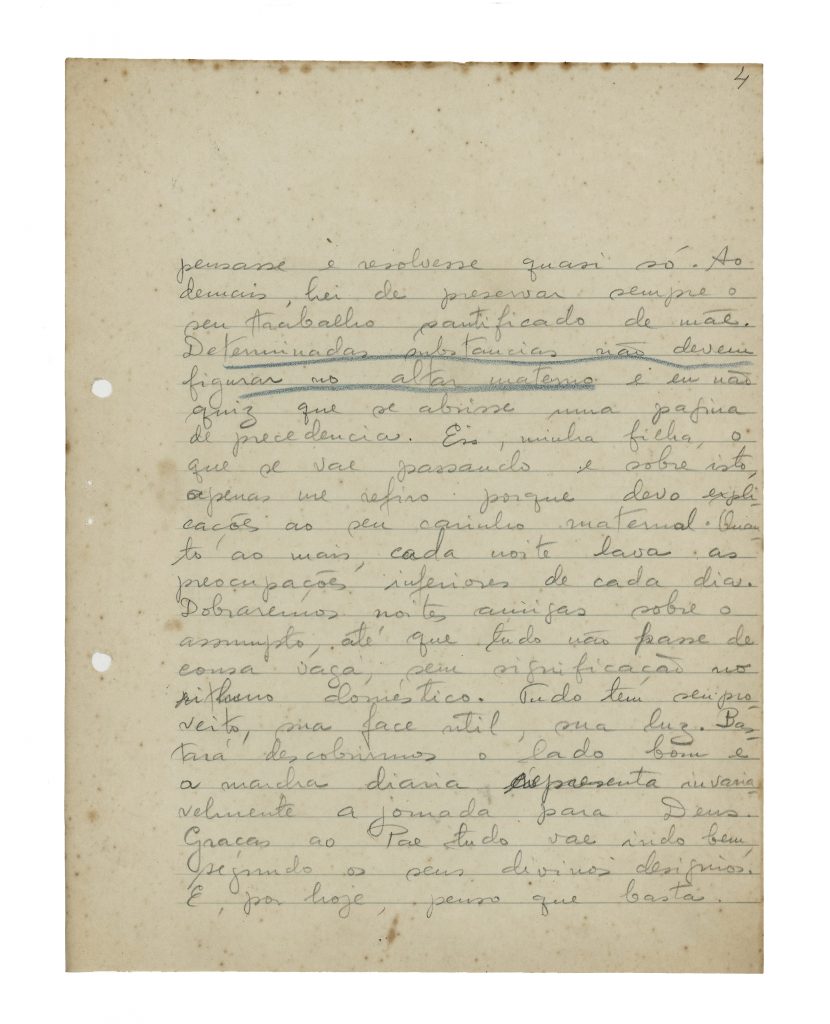 4
pensasse e resolvesse quasi só. Ao
demais, hei de preservar sempre o
seu trabalho santificado de mãe.
Determinadas substancias não devem
figurar no altar materno e eu não
quiz que se abrisse uma pagina
de precedencia. Eis, minha filha, o
que se vae passando e sobre isto,
apenas me refiro porque devo expli-
cações ao seu carinho maternal. Quan-
to ao mais, cada noite lava as
preocupações inferiores de cada dia.
Dobraremos noites amigas sobre o
assumpto, até que tudo não passe de
cousa vaga, sem significação no
rithmo doméstico. Tudo tem seu pro-
veito, sua face util, sua luz. Bas-
tará descobrirmos o lado bom e
a marcha diaria representa invaria-
velmente a jornada para Deus.
Graças ao Pae tudo vae indo bem,
segundo os seus divinos designios.
E, por hoje, penso que basta.